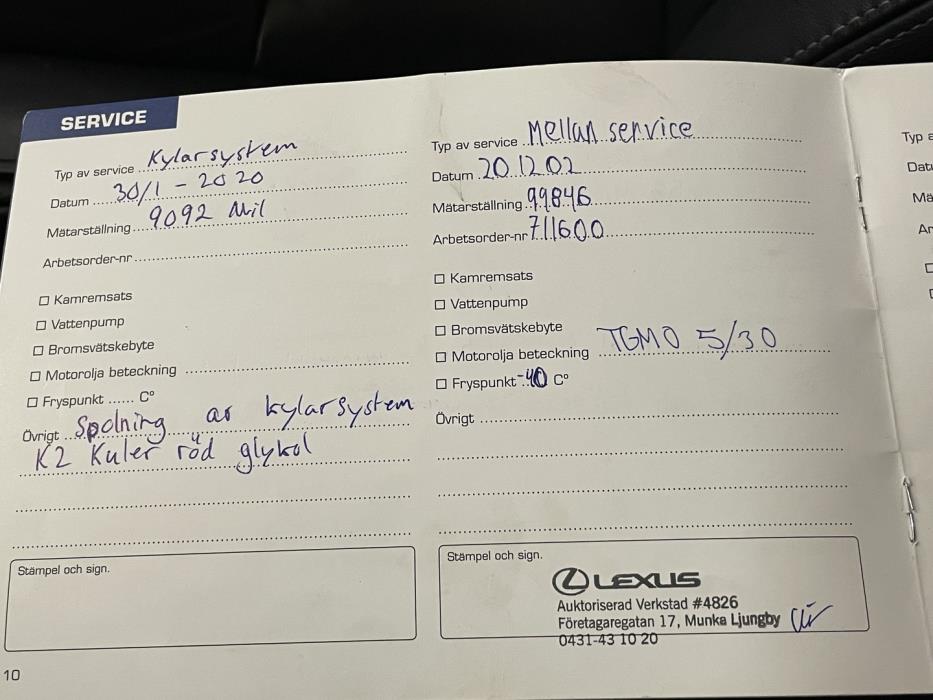 SERVICE
Typ av service Kylarsystem
Datum 30/1 - 2020
Mätarställning 9092 Mil
Arbetsorder-nr
Kamremsats
Vattenpump
Bromsvätskebyte
Motorolja beteckning
Fryspunkt ...... C°
Övrigt Spolning av kylarsystem
K2 Kuler röd glykol
Stämpel och sign.
10
Typ av service Mellan service
Datum 201202
Mätarställning 99846
Arbetsorder-nr 711600
Kamremsats
Vattenpump
Bromsvätskebyte
Motorolja beteckning TGMO 5/30
Fryspunkt -40 C°
Övrigt
Stämpel och sign.
LEXUS
Auktoriserad Verkstad #4826
Företagaregatan 17, Munka Ljungby
0431-43 10 20
Typ a
Datu
Mä
Ar